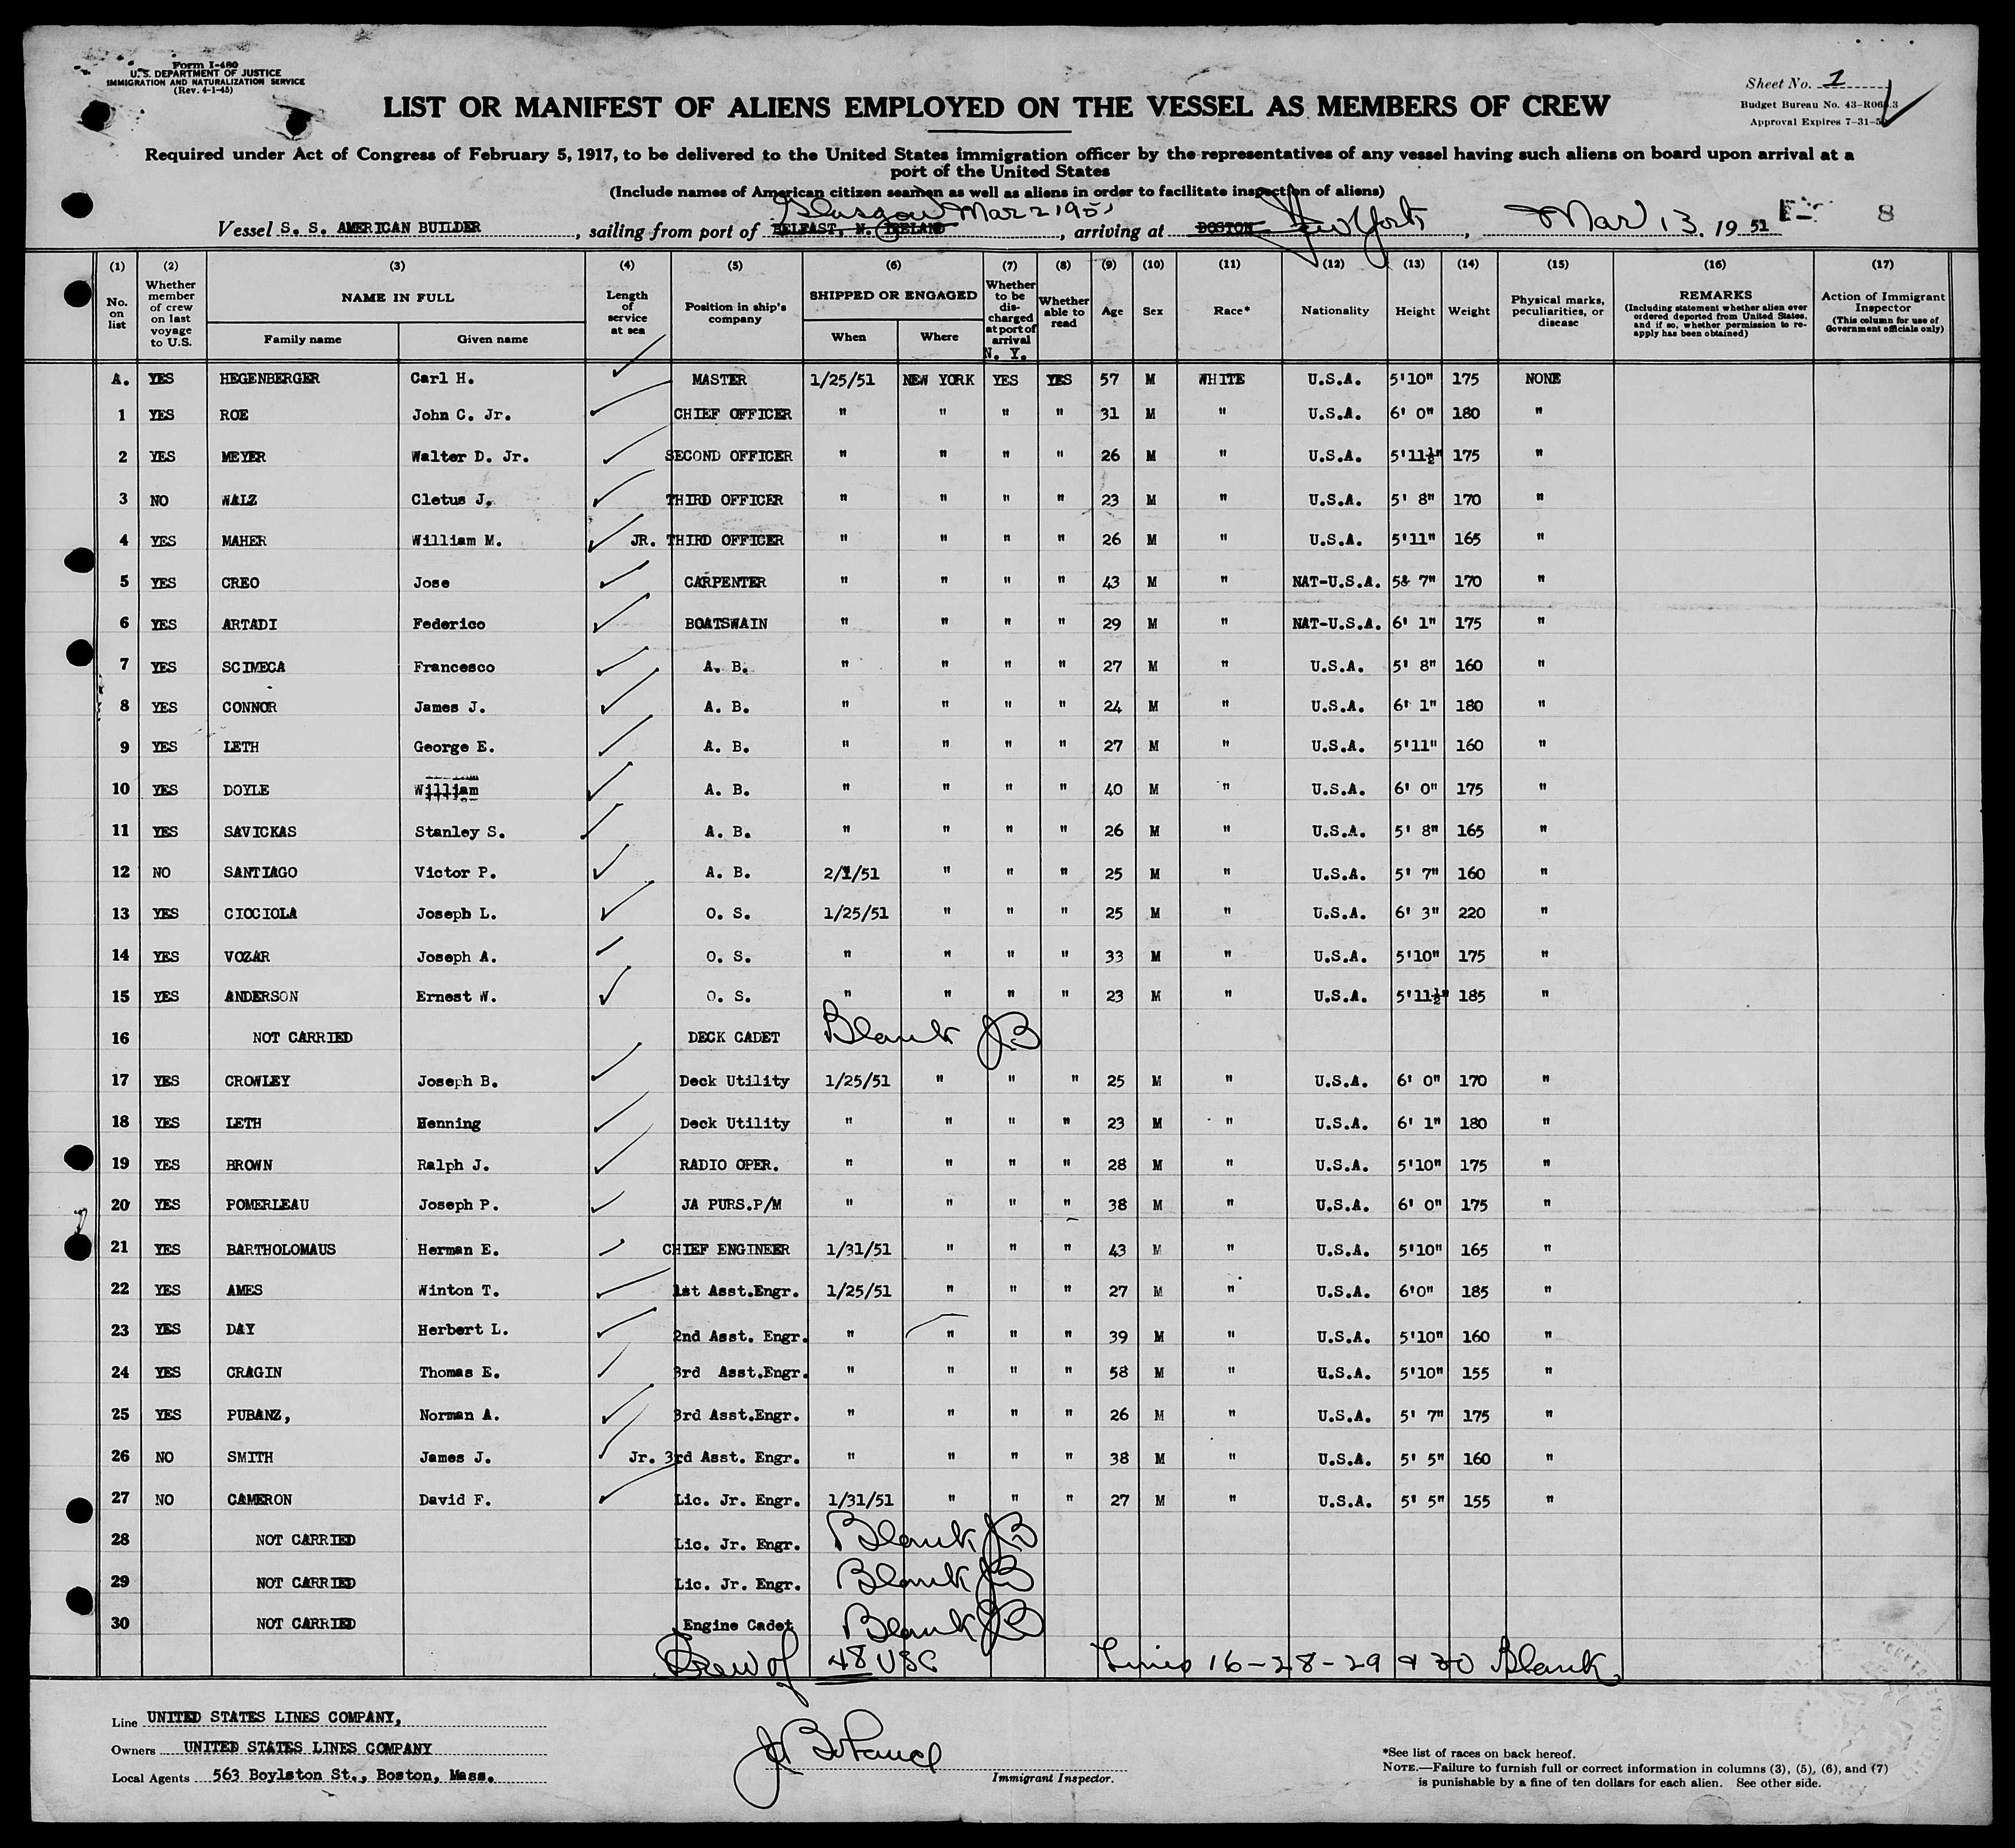 Form I-480
U. S. DEPARTMENT OF JUSTICE
IMMIGRATION AND NATURALIZATION SERVICE
(Rev. 4-1-45)
Sheet No. 1
Budget Bureau No. 43-R065.3
Approval Expires 7-31-50
LIST OR MANIFEST OF ALIENS EMPLOYED ON THE VESSEL AS MEMBERS OF CREW
Required under Act of Congress of February 5, 1917, to be delivered to the United States immigration officer by the representatives of any vessel having such aliens on board upon arrival at a
port of the United States
(Include names of American citizen seamen as well as aliens in order to facilitate inspection of aliens)
Glasgow Mar 2 1951
Vessel S. S. AMERICAN BUILDER, sailing from port of BELFAST, N. IRELAND, arriving at BOSTON New York, Mar 13, 19 51 8
(1) (2) (3) (4) (5) (6) (7) (8) (9) (10) (11) (12) (13) (14) (15) (16) (17)
No. on list
Whether member of crew on last voyage to U.S.
NAME IN FULL
Family name Given name
Length of service at sea
Position in ship's company
SHIPPED OR ENGAGED
When Where
Whether to be discharged at port of arrival
N. Y.
Whether able to read
Age Sex Race* Nationality Height Weight
Physical marks, peculiarities, or disease
REMARKS
(Including statement whether alien ever ordered deported from United States, and if so, whether permission to reapply has been obtained)
Action of Immigrant Inspector
(This column for use of Government officials only)
A. YES HEGENBERGER Carl H. MASTER 1/25/51 NEW YORK YES YES 57 M WHITE U.S.A. 5'10" 175 NONE
1 YES ROE John C. Jr. CHIEF OFFICER " " " " 31 M " U.S.A. 6' 0" 180 "
2 YES MEYER Walter D. Jr. SECOND OFFICER " " " " 26 M " U.S.A. 5'11½" 175 "
3 NO WALZ Cletus J. THIRD OFFICER " " " " 23 M " U.S.A. 5' 8" 170 "
4 YES MAHER William M. JR. THIRD OFFICER " " " " 26 M " U.S.A. 5'11" 165 "
5 YES CREO Jose CARPENTER " " " " 43 M " NAT-U.S.A. 5& 7" 170 "
6 YES ARTADI Federico BOATSWAIN " " " " 29 M " NAT-U.S.A. 6' 1" 175 "
7 YES SCIMECA Francesco A. B. " " " " 27 M " U.S.A. 5' 8" 160 "
8 YES CONNOR James J. A. B. " " " " 24 M " U.S.A. 6' 1" 180 "
9 YES LETH George E. A. B. " " " " 27 M " U.S.A. 5'11" 160 "
10 YES DOYLE William A. B. " " " " 40 M " U.S.A. 6' 0" 175 "
11 YES SAVICKAS Stanley S. A. B. " " " " 26 M " U.S.A. 5' 8" 165 "
12 NO SANTIAGO Victor P. A. B. 2/1/51 " " " 25 M " U.S.A. 5' 7" 160 "
13 YES CIOCIOLA Joseph L. O. S. 1/25/51 " " " 25 M " U.S.A. 6' 3" 220 "
14 YES VOZAR Joseph A. O. S. " " " " 33 M " U.S.A. 5'10" 175 "
15 YES ANDERSON Ernest W. O. S. " " " " 23 M " U.S.A. 5'11½" 185 "
16 NOT CARRIED DECK CADET Blank JB
17 YES CROWLEY Joseph B. Deck Utility 1/25/51 " " " 25 M " U.S.A. 6' 0" 170 "
18 YES LETH Henning Deck Utility " " " " 23 M " U.S.A. 6' 1" 180 "
19 YES BROWN Ralph J. RADIO OPER. " " " " 28 M " U.S.A. 5'10" 175 "
20 YES POMERLEAU Joseph P. JA PURS.P/M " " " " 38 M " U.S.A. 6' 0" 175 "
21 YES BARTHOLOMAUS Herman E. CHIEF ENGINEER 1/31/51 " " " 43 M " U.S.A. 5'10" 165 "
22 YES AMES Winton T. 1st Asst.Engr. 1/25/51 " " " 27 M " U.S.A. 6'0" 185 "
23 YES DAY Herbert L. 2nd Asst. Engr. " " " " 39 M " U.S.A. 5'10" 160 "
24 YES CRAGIN Thomas E. 3rd Asst.Engr. " " " " 58 M " U.S.A. 5'10" 155 "
25 YES PUBANZ, Norman A. 3rd Asst.Engr. " " " " 26 M " U.S.A. 5' 7" 175 "
26 NO SMITH James J. Jr. 3rd Asst. Engr. " " " " 38 M " U.S.A. 5' 5" 160 "
27 NO CAMERON David F. Lic. Jr. Engr. 1/31/51 " " " 27 M " U.S.A. 5' 5" 155 "
28 NOT CARRIED Lic. Jr. Engr. Blank JB
29 NOT CARRIED Lic. Jr. Engr. Blank JB
30 NOT CARRIED Engine Cadet Blank JB
Crew of 48 USC Lines 16-28-29 & 30 Blank
Line UNITED STATES LINES COMPANY,
Owners UNITED STATES LINES COMPANY
Local Agents 563 Boylston St., Boston, Mass.
Immigrant Inspector.
*See list of races on back hereof.
NOTE.—Failure to furnish full or correct information in columns (3), (5), (6), and (7)
is punishable by a fine of ten dollars for each alien. See other side.